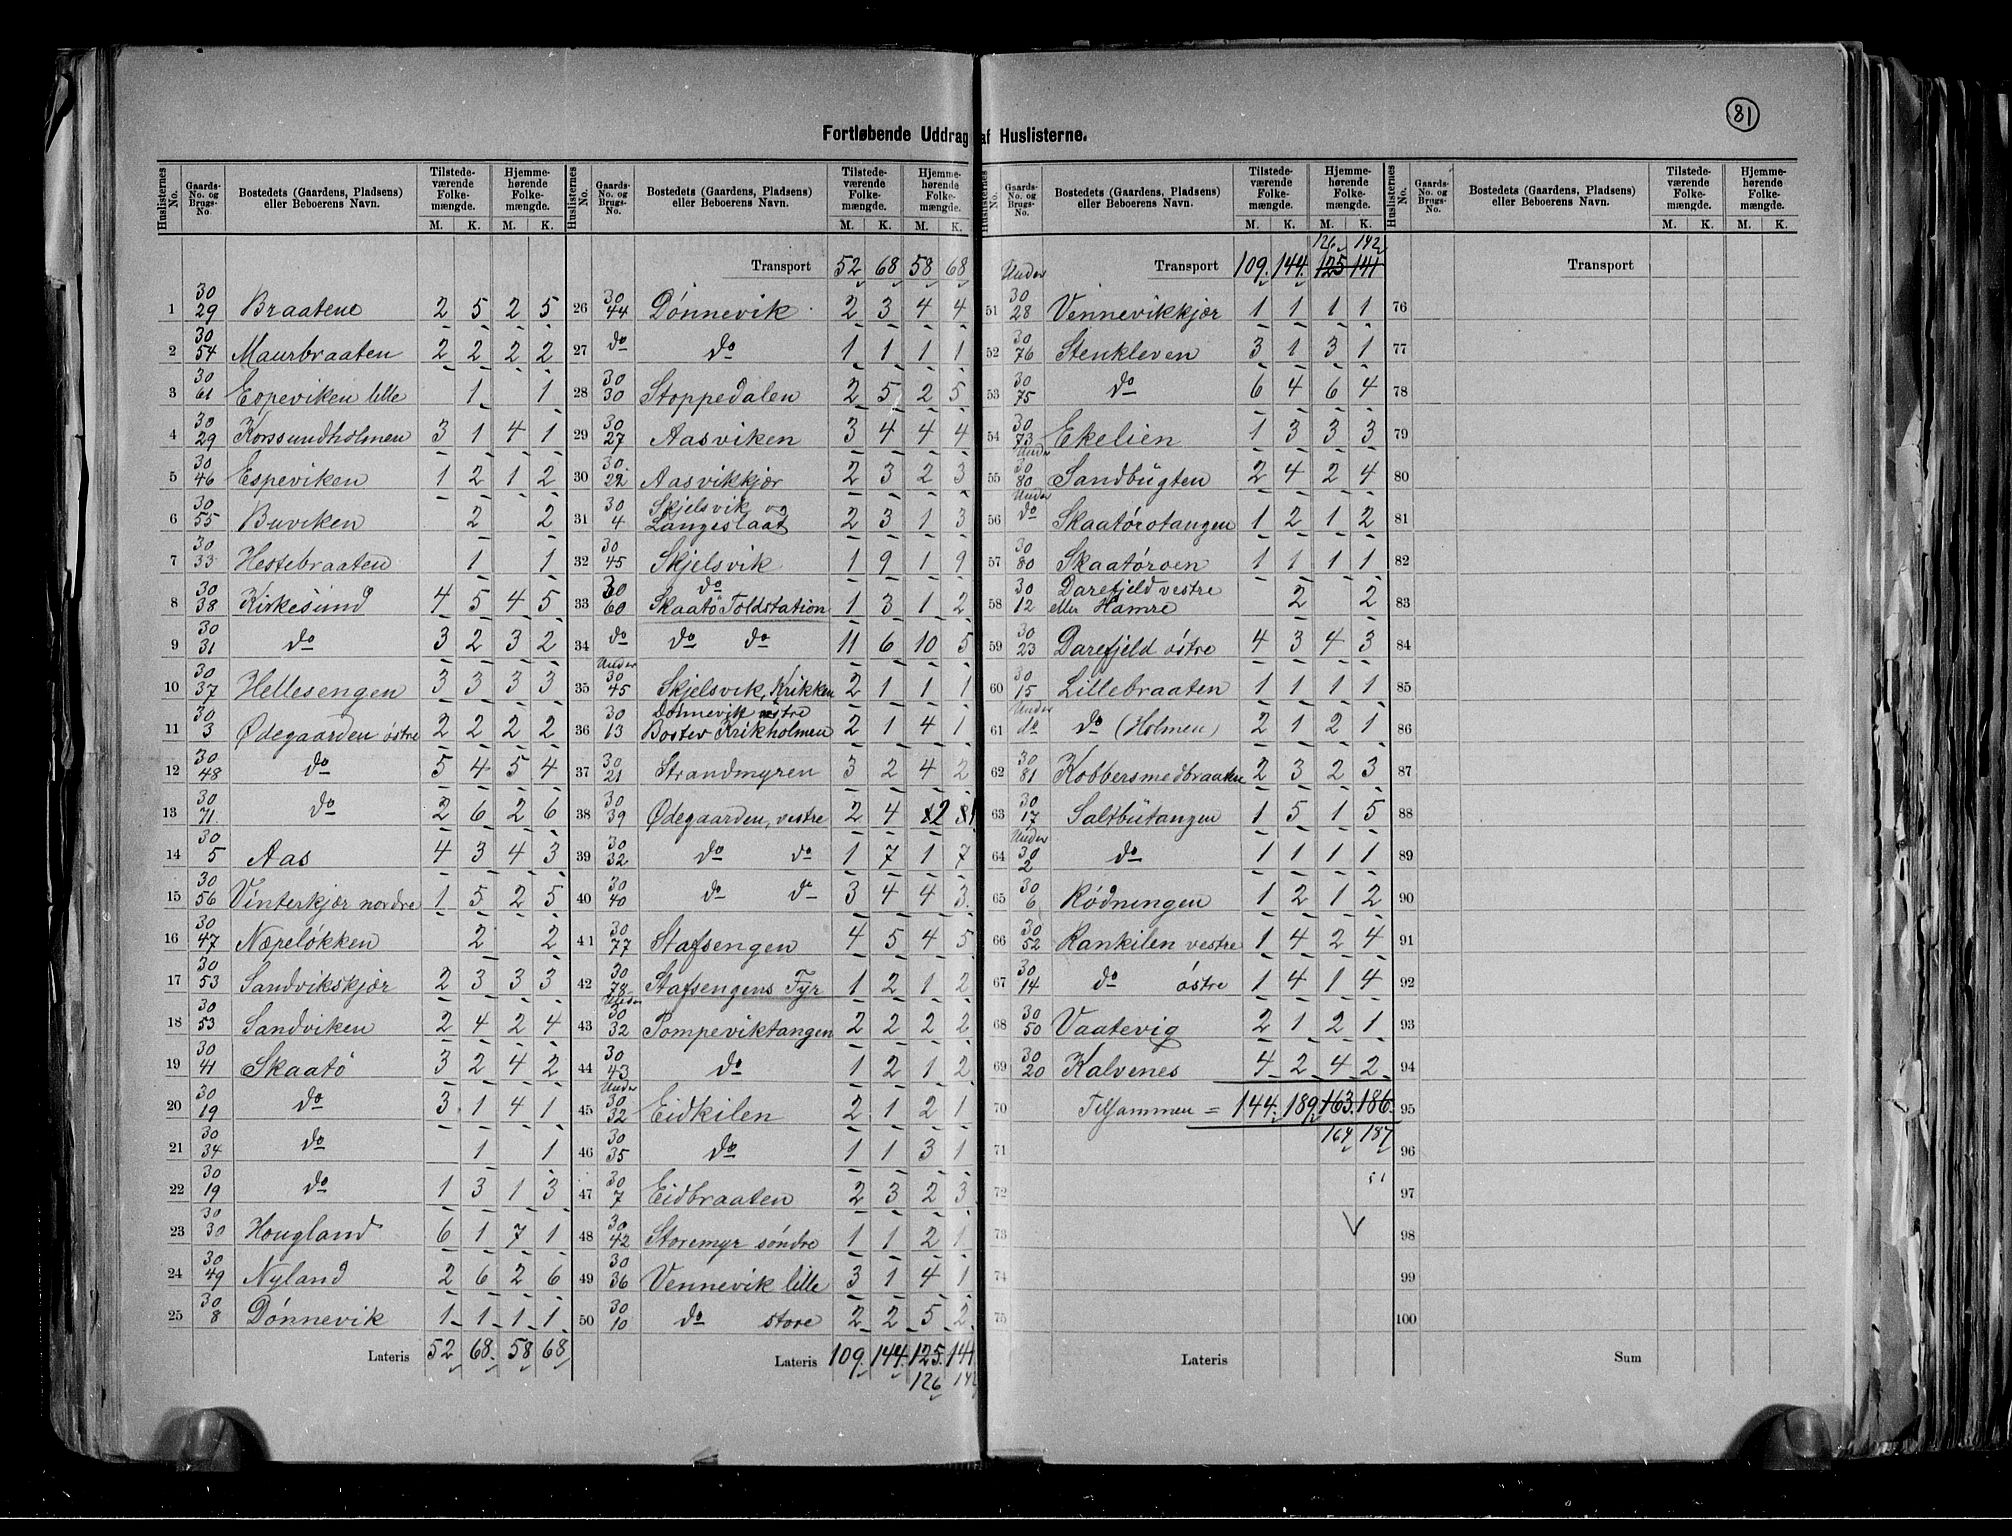 81
Fortløbende Uddrag af Huslisterne.
Huslisternes No. | Gaards-No. og Brugs-No. | Bostedets (Gaardens, Pladsens) eller Beboerens Navn. | Tilstedeværende Folkemængde. M. K. | Hjemmehørende Folkemængde. M. K.
1 30/29 Braatene 2 5 2 5
2 30/54 Maurbraaten 2 2 2 2
3 30/61 Espeviken lille 1 1
4 30/29 Korssundholmen 3 1 4 1
5 30/46 Espeviken 1 2 1 2
6 30/55 Buviken 2 2
7 30/33 Hestebraaten 1 1
8 30/38 Kirkesund 4 5 4 5
9 30/31 do 3 2 3 2
10 30/37 Hellesengen 3 3 3 3
11 30/3 Ødegaarden østre 2 2 2 2
12 30/48 do 5 4 5 4
13 30/71 do 2 6 2 6
14 30/5 Aas 4 3 4 3
15 30/56 Vinterkjær nordre 1 5 2 5
16 30/47 Næreløkken 2 2
17 30/53 Sandvikskjær 2 3 3 3
18 30/53 Sandviken 2 4 2 4
19 30/41 Skaatö 3 2 4 2
20 30/19 do 3 1 4 1
21 30/34 do 1 1
22 30/19 do 1 3 1 3
23 30/30 Hougland 6 1 7 1
24 30/49 Nyland 2 6 2 6
25 30/8 Dønnevik 1 1 1 1
Lateris 52 68 58 68
Transport 52 68 58 68
26 30/44 Dønnevik 2 3 4 4
27 do do 1 1 1 1
28 30/30 Stoppedalen 2 5 2 5
29 30/27 Aasviken 3 4 4 4
30 30/22 Aasvikkjær 2 3 2 3
31 30/4 Skjelsvik og Langeslaat 2 3 1 3
32 30/45 Skjelsvik 1 9 1 9
33 30/60 do Skaatö Toldstation 1 3 1 2
34 do do do 11 6 10 5
35 Under 30/45 Skjelsvik, Krikken 2 1 1 1
36 30/13 Dønnevik østre Bostev Krikholmen 2 1 4 1
37 30/21 Strandmyren 3 2 4 2
38 30/39 Ødegaarden, vestre 2 4 2 1
39 30/32 do do 1 7 1 7
40 30/40 do do 3 4 4 3
41 30/77 Stafsengen 4 5 4 5
42 30/78 Stafsengens Fyr 1 2 1 2
43 Under 30/32 Pompeviktangen 2 2 2 2
44 30/43 do 1 2 1 2
45 Under 30/32 Eidkilen 2 1 2 1
46 30/35 do 1 1 3 1
47 30/7 Eidbraaten 2 3 2 3
48 30/42 Storemyr søndre 1 1 2 1
49 30/36 Vennevik lille 3 1 4 1
50 30/10 do store 2 2 5 2
Lateris 109 144 125 141
126 142
Huslisternes No. | Gaards-No. og Brugs-No. | Bostedets (Gaardens, Pladsens) eller Beboerens Navn. | Tilstedeværende Folkemængde. M. K. | Hjemmehørende Folkemængde. M. K.
126 142
Transport 109 144 125 141
51 Under 30/28 Vennevikkjær 1 1 1 1
52 30/76 Stenkleven 3 1 3 1
53 30/75 do 6 4 6 4
54 30/73 Ekelien 1 3 3 3
55 Under 30/80 Sandbugten 2 4 2 4
56 Under do Skaatørotangen 1 2 1 2
57 30/80 Skaatøroen 1 1 1 1
58 30/12 Darefjeld vestre eller Hamre 2 2
59 30/23 Darefjeld østre 4 3 4 3
60 30/15 Lillebraaten 1 1 1 1
61 Under do do (Holmen) 2 1 2 1
62 30/81 Kobbersmedbraaten 2 3 2 3
63 30/17 Saltbutangen 1 5 1 5
64 Under 30/2 do 1 1 1 1
65 30/6 Rødningen 1 2 1 2
66 30/52 Rankilen vestre 1 4 2 4
67 30/14 do østre 1 4 1 4
68 30/50 Vaatevig 2 1 2 1
69 30/20 Kalvenes 4 2 4 2
70 Tilsammen = 144 189 163 186
71 164 187
72
73
74
75
Lateris
Transport
76
77
78
79
80
81
82
83
84
85
86
87
88
89
90
91
92
93
94
95
96
97
98
99
100
Sum